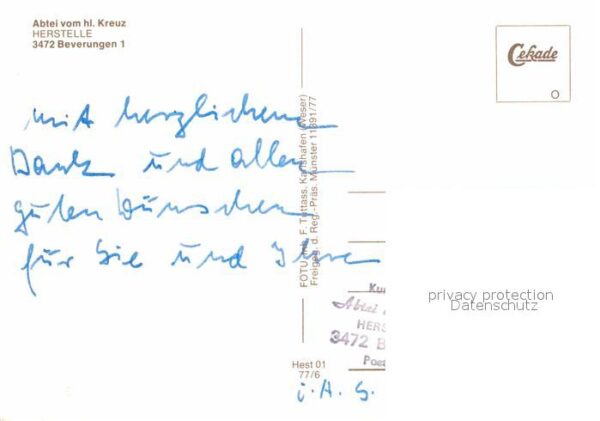 Abtei vom hl. Kreuz
HERSTELLE
3472 Beverungen 1
Cekade
mit herzlichem
Dank und allen
guten Wünschen
für Sie und Ihre
FOTU Inh. F. Tuttass, Karlshafen (Weser)
Freigeg. d. Reg.-Präs. Münster 11391/77
privacy protection
Datenschutz
Abtei
HERS
3472 B
Post
Hest 01
77/6
i. A. S.